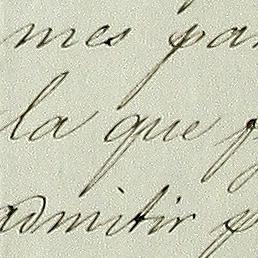 mes par
la que p
admitir p